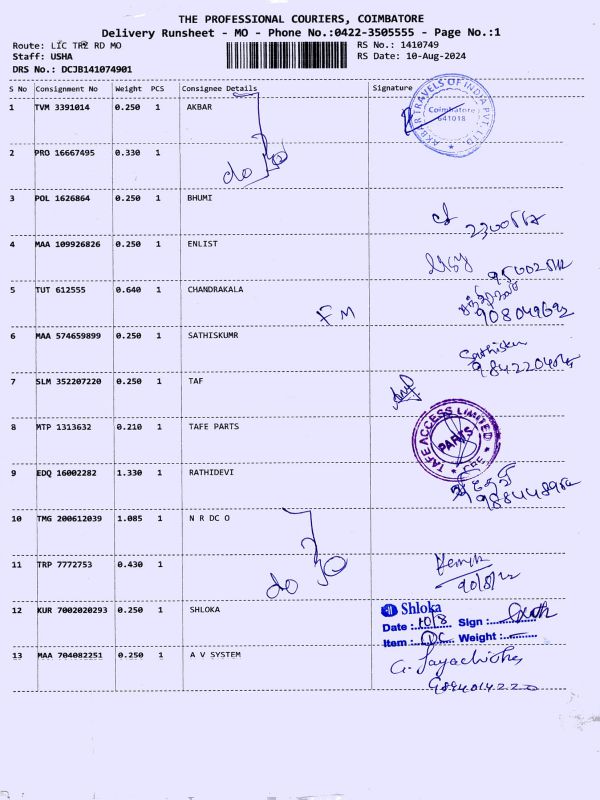 THE PROFESSIONAL COURIERS, COIMBATORE
Delivery Runsheet - MO - Phone No.:0422-3505555 - Page No.:1
Route: LIC TRZ RD MO
RS No.: 1410749
Staff: USHA
RS Date: 10-Aug-2024
DRS No.: DCJB141074901
S No Consignment No Weight PCS Consignee Details Signature
1 TVM 3391014 0.250 1 AKBAR
AKBAR TRAVELS OF INDIA PVT. LTD.
Coimbatore
641018
2 PRO 16667495 0.330 1
do
3 POL 1626864 0.250 1 BHUMI
4 MAA 109926826 0.250 1 ENLIST
5 TUT 612555 0.640 1 CHANDRAKALA
FM
6 MAA 574659899 0.250 1 SATHISKUMR
7 SLM 352207220 0.250 1 TAF
8 MTP 1313632 0.210 1 TAFE PARTS
TAFE ACCESS LIMITED
PARTS
CBE
9 EDQ 16002282 1.330 1 RATHIDEVI
10 TMG 200612039 1.085 1 N R DC O
11 TRP 7772753 0.430 1
do
12 KUR 7002020293 0.250 1 SHLOKA
Shloka
Date : 10/8 Sign :
Item : DC Weight :
13 MAA 704082251 0.250 1 A V SYSTEM